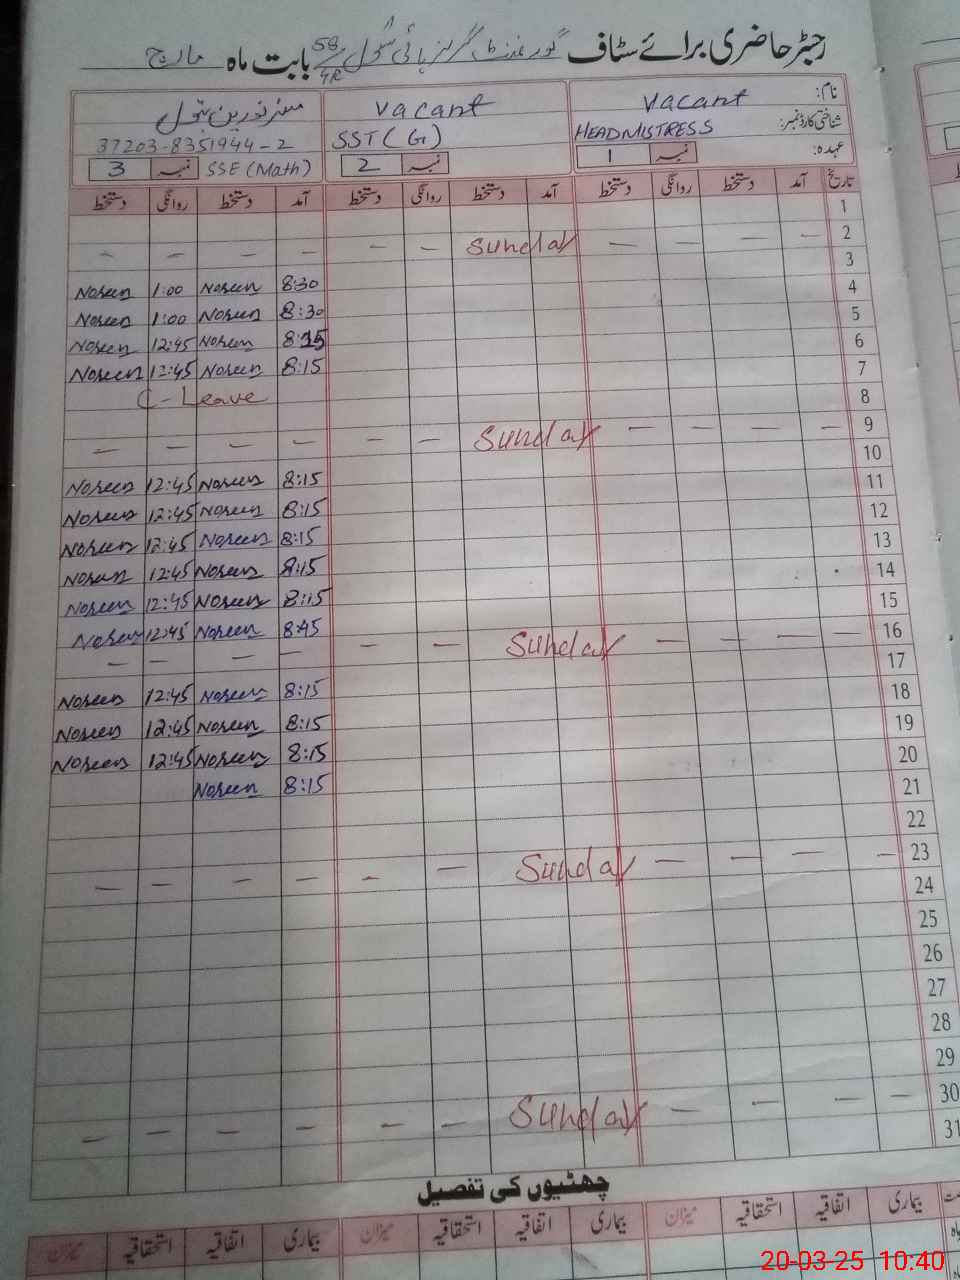 رجسٹر حاضری برائے سٹاف گورنمنٹ گرلز ہائی سکول 58/4R بابت ماہ مارچ
نام: Vacant Vacant مسز نورین بتول
شناختی کارڈ نمبر: 37203-8351944-2
عہدہ: HEADMISTRESS SST (G) SSE (Math)
نمبر 1 نمبر 2 نمبر 3
تاریخ آمد دستخط روانگی دستخط آمد دستخط روانگی دستخط آمد دستخط روانگی دستخط
1
2 — — — — Sunday — — — — — —
3 8:30 Noreen 1:00 Noreen
4 8:30 Noreen 1:00 Noreen
5 8:15 Noreen 12:45 Noreen
6 8:15 Noreen 12:45 Noreen
7 C-Leave
8
9 — — — — Sunday — — — — — —
10 8:15 Noreen 12:45 Noreen
11 8:15 Noreen 12:45 Noreen
12 8:15 Noreen 12:45 Noreen
13 8:15 Noreen 12:45 Noreen
14 8:15 Noreen 12:45 Noreen
15 8:45 Noreen 12:45 Noreen
16 — — — — Sunday — — — — — —
17 8:15 Noreen 12:45 Noreen
18 8:15 Noreen 12:45 Noreen
19 8:15 Noreen 12:45 Noreen
20 8:15 Noreen
21
22
23 — — — — Sunday — — — — — —
24
25
26
27
28
29
30 — — — — Sunday — — — — — —
31
چھٹیوں کی تفصیل
بیماری اتفاقیہ استحقاقیہ میزان بیماری اتفاقیہ استحقاقیہ میزان بیماری اتفاقیہ استحقاقیہ میزان
20-03-25 10:40